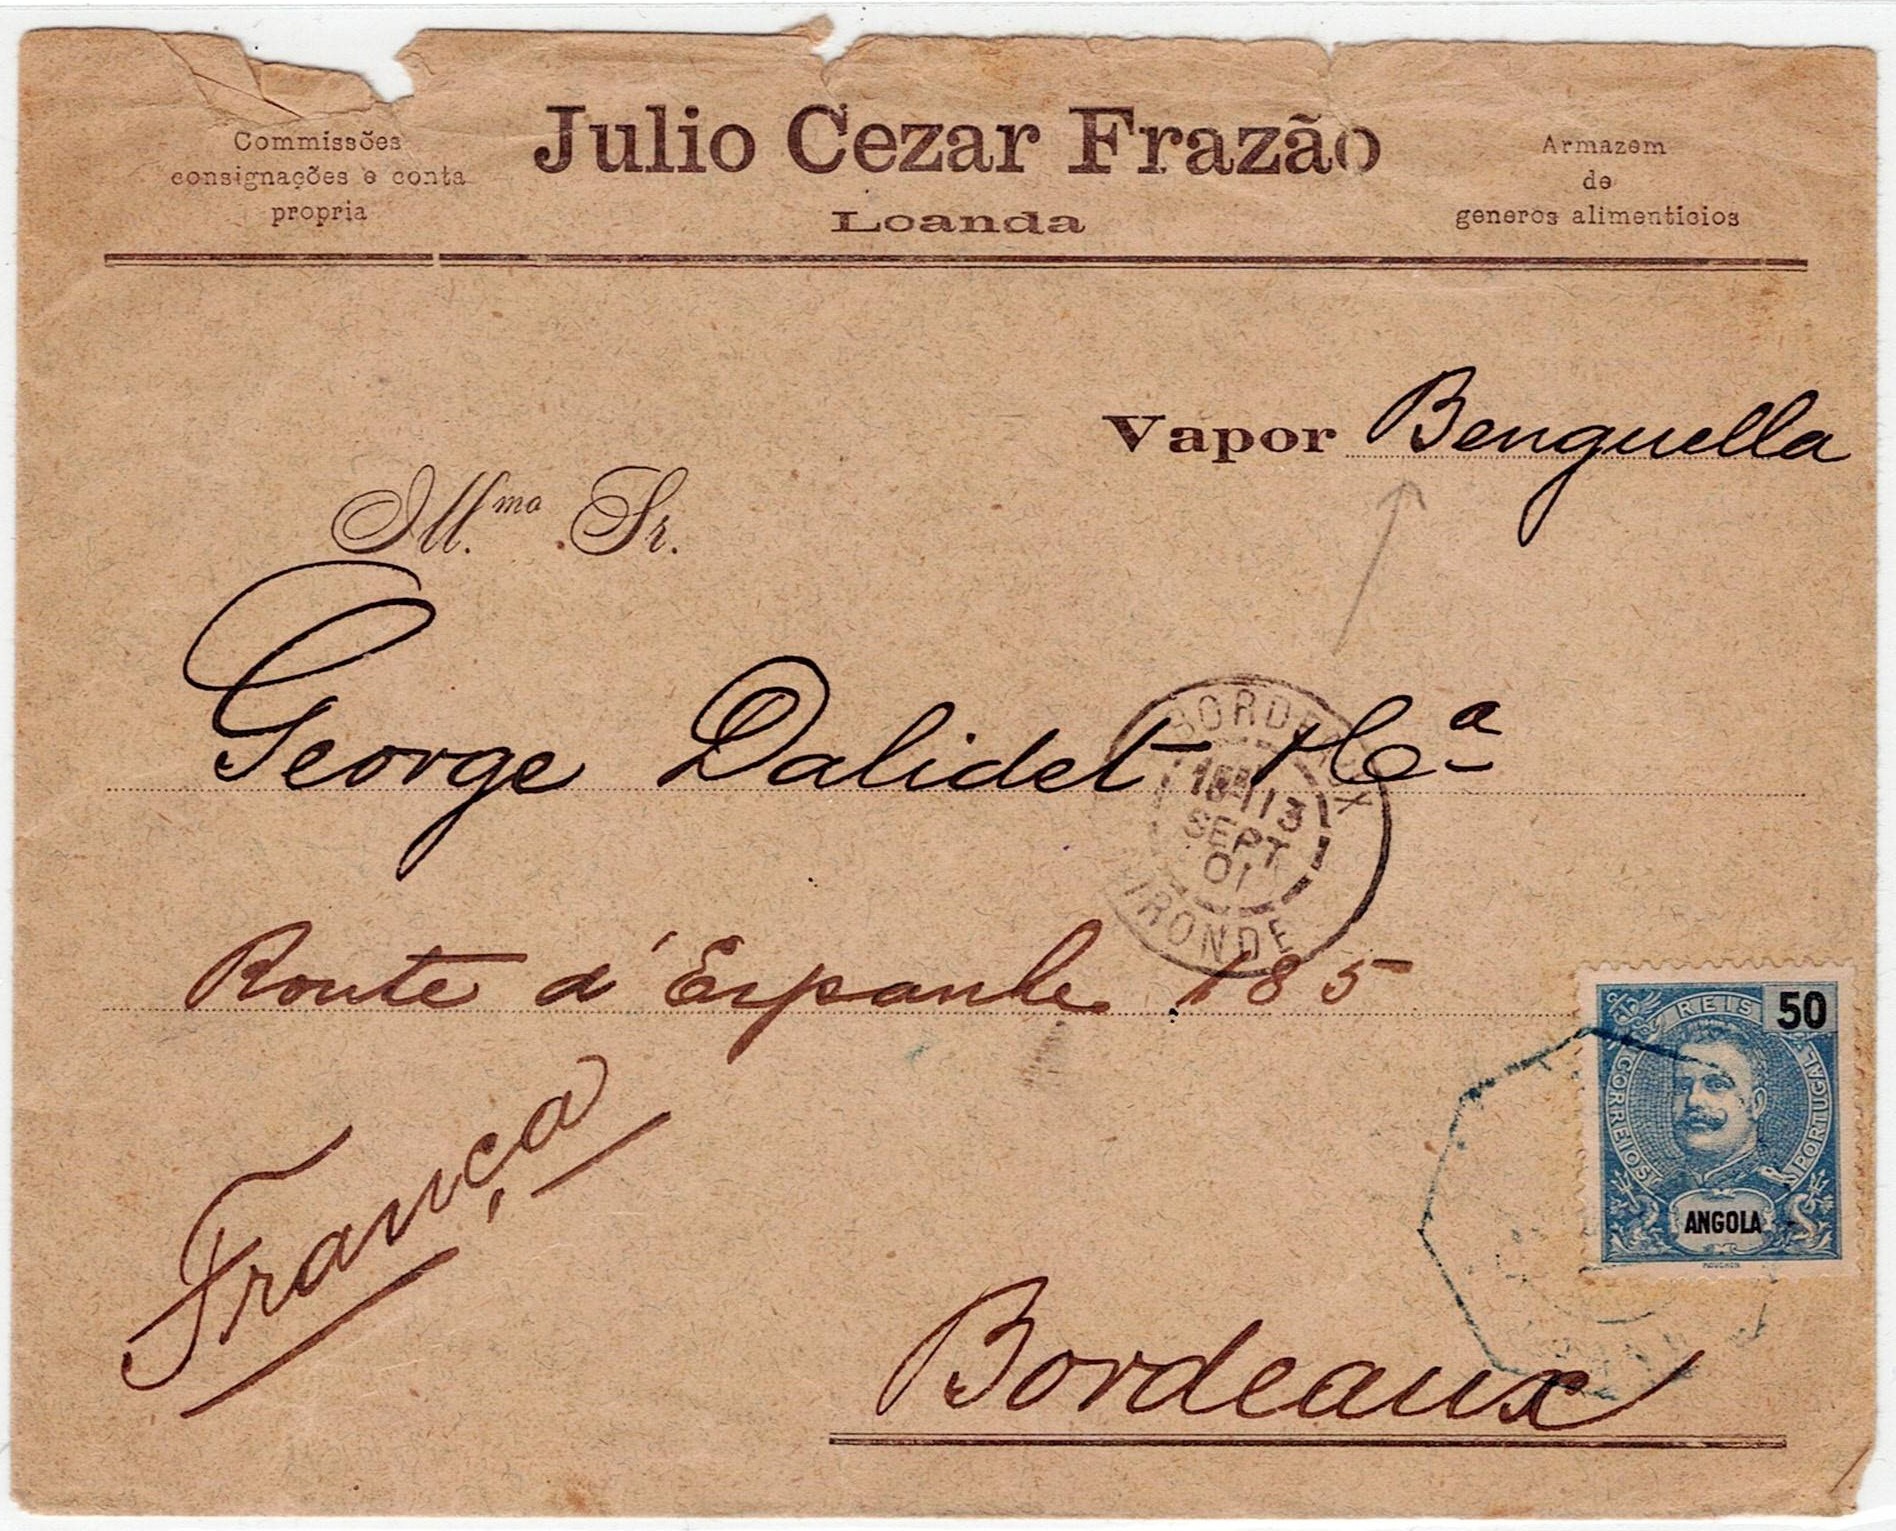 Commissões
consignações e conta
propria
Julio Cezar Frazão
Loanda
Armazem
de
generos alimenticios
Vapor Benguella
Ill.mo Sr.
George Dalidet & Ca
BORDEAUX
13
SEPT
01
GIRONDE
Route d'Espanhe 185
França
Bordeaux
REIS 50
CORREIOS
PORTUGAL
ANGOLA
MOUCHON